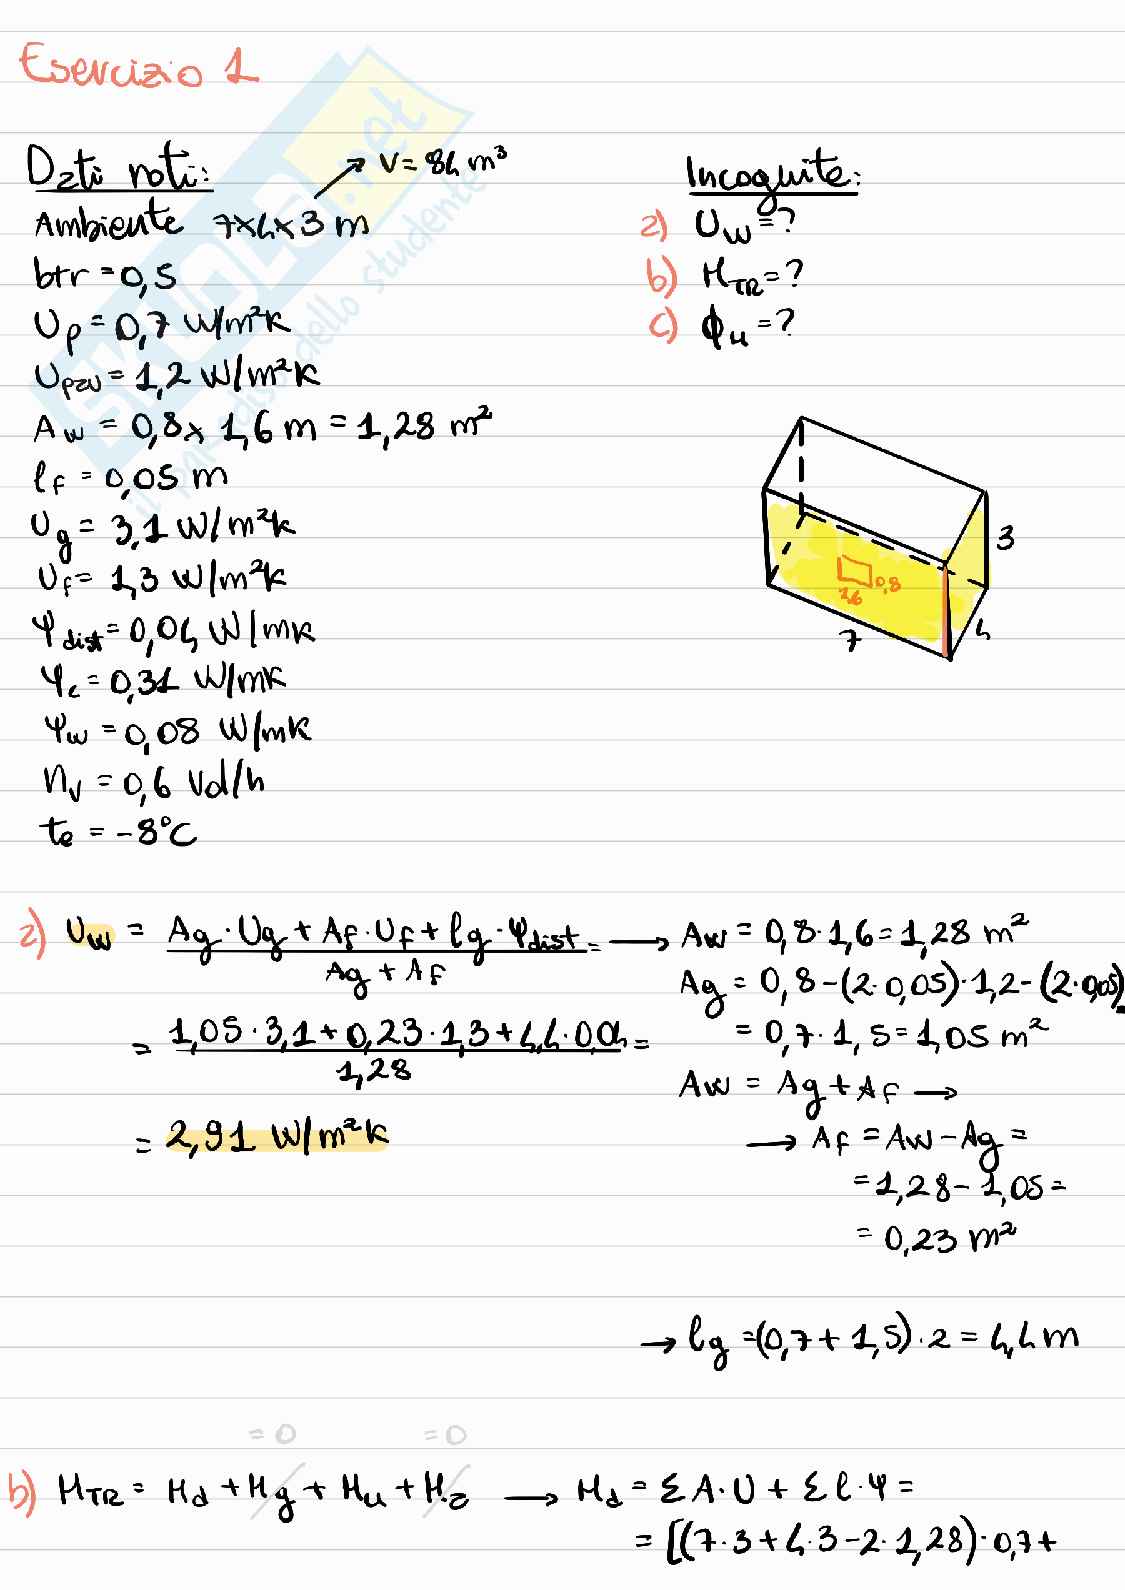 Esercizio 1
Dati noti:
V = 84 m³
Ambiente 7×4×3 m
btr = 0,5
Up = 0,7 W/m²K
Upav = 1,2 W/m²K
Aw = 0,8 × 1,6 m = 1,28 m²
lf = 0,05 m
Ug = 3,1 W/m²K
Uf = 1,3 W/m²K
Ψdist = 0,04 W/mK
Ψc = 0,31 W/mK
Ψw = 0,08 W/mK
nv = 0,6 Vol/h
te = -8°C
Incognite:
a) Uw = ?
b) HTR = ?
c) ϕH = ?
3
0,8
1,6
7
4
a) Uw = Ag · Ug + Af · Uf + lg · Ψdist =
Ag + Af
= 1,05 · 3,1 + 0,23 · 1,3 + 4,4 · 0,04 =
1,28
= 2,91 W/m²K
→ Aw = 0,8 · 1,6 = 1,28 m²
Ag = 0,8 - (2 · 0,05) · 1,2 - (2 · 0,05)
= 0,7 · 1,5 = 1,05 m²
Aw = Ag + Af →
→ Af = Aw - Ag =
= 1,28 - 1,05 =
= 0,23 m²
→ lg = (0,7 + 1,5) · 2 = 4,4 m
= 0 = 0
b) HTR = Hd + Hg + Hu + Ha → Hd = Σ A · U + Σ l · Ψ =
= [(7 · 3 + 4 · 3 - 2 · 1,28) · 0,7 +
SKUOLA.net
il paradiso dello studente